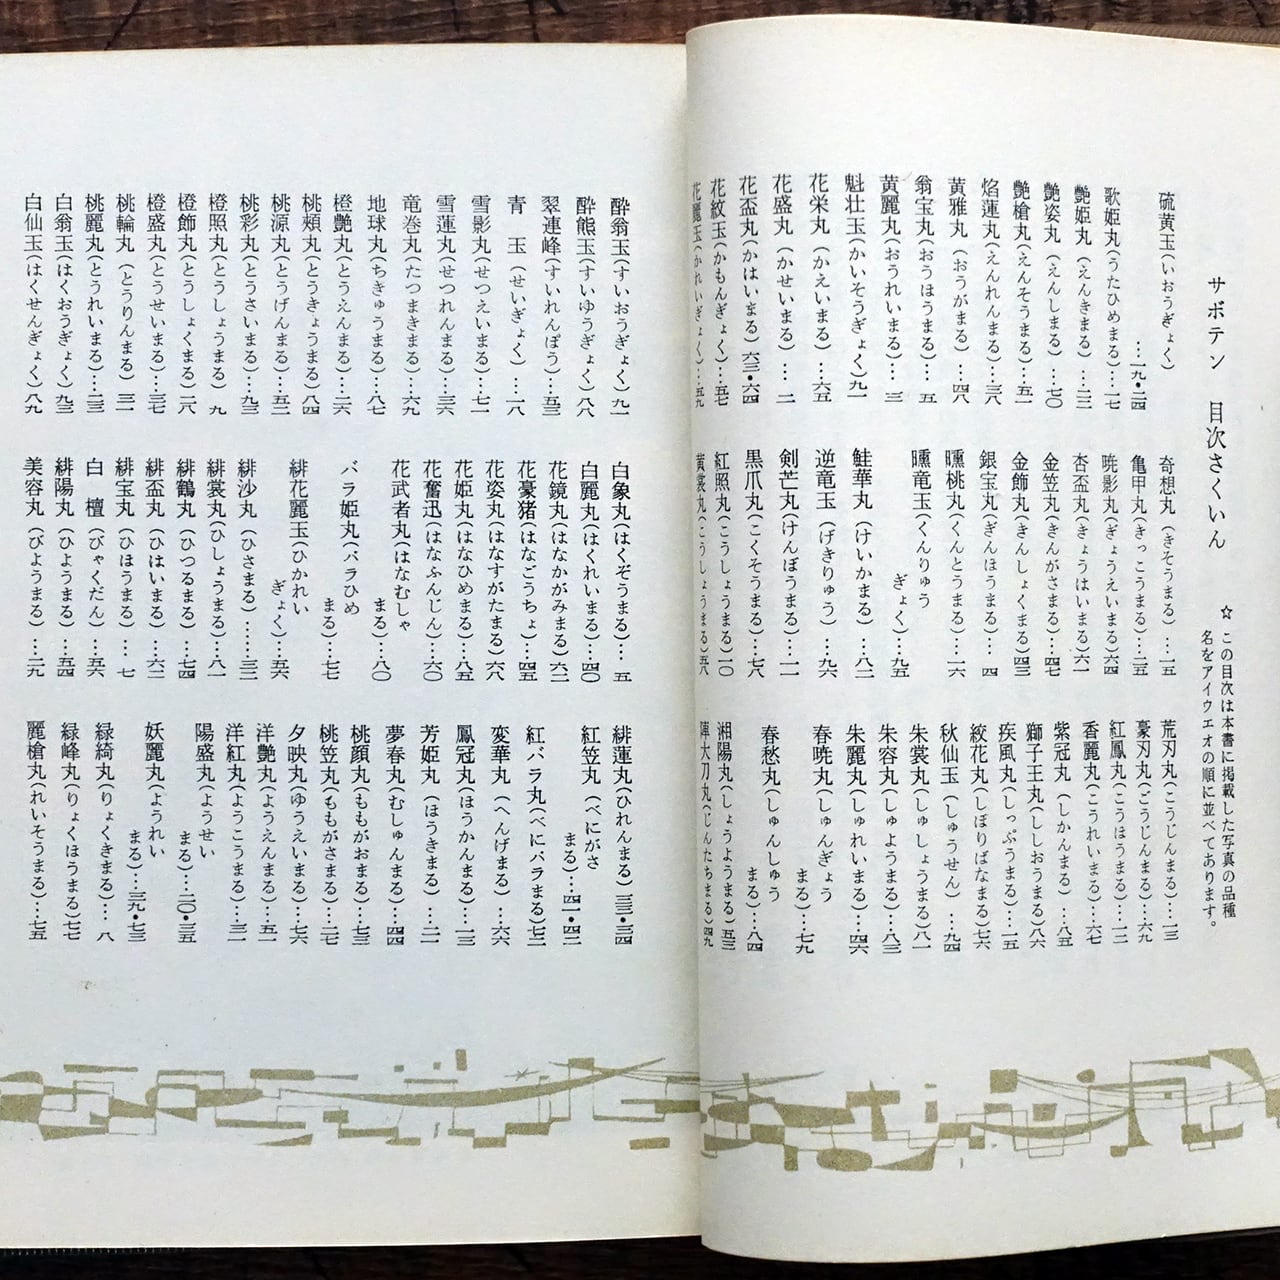 サボテン 目次さくいん
☆この目次は本書に掲載した写真の品種
名をアイウエオの順に並べてあります。
硫黄玉(いおうぎょく)
…一九・二四
歌姫丸(うたひめまる)…一七
艶姫丸(えんきまる)…二二
艶姿丸(えんしまる)…七〇
艶槍丸(えんそうまる)…五一
焰蓮丸(えんれんまる)…三八
黄雅丸(おうがまる)…四八
翁宝丸(おうほうまる)…五
黄麗丸(おうれいまる)…三
魁壮玉(かいそうぎょく)九一
花栄丸(かえいまる)…六五
花盛丸(かせいまる)…二
花盃丸(かはいまる)六三・六四
花紋玉(かもんぎょく)…五七
花麗玉(かれいぎょく)…五九
奇想丸(きそうまる)…一五
亀甲丸(きっこうまる)…二五
暁影丸(ぎょうえいまる)六四
杏盃丸(きょうはいまる)六一
金笠丸(きんがさまる)…四七
金飾丸(きんしょくまる)四三
銀宝丸(ぎんほうまる)…四
曛桃丸(くんとうまる)…一六
曛竜玉(くんりゅう
ぎょく)…九五
鮭華丸(けいかまる)…八二
逆竜玉(げきりゅう)…九六
剣芒丸(けんぼうまる)…一一
黒爪丸(こくそうまる)…七八
紅照丸(こうしょうまる)一〇
黄裳丸(こうしょうまる)五八
荒刃丸(こうじんまる)…一三
豪刃丸(ごうじんまる)…六九
紅鳳丸(こうほうまる)…一二
香麗丸(こうれいまる)…六七
紫冠丸(しかんまる)…八五
獅子王丸(ししおうまる)八六
疾風丸(しっぷうまる)…一五
絞花丸(しぼりばなまる)七六
秋仙玉(しゅうせん)…九四
朱裳丸(しゅしょうまる)八一
朱容丸(しゅようまる)…八三
朱麗丸(しゅれいまる)…四六
春暁丸(しゅんぎょう
まる)…七九
春愁丸(しゅんしゅう
まる)…八四
湘陽丸(しょうようまる)五三
陣太刀丸(じんたちまる)四九
酔翁玉(すいおうぎょく)九一
酔熊玉(すいゆうぎょく)八八
翠連峰(すいれんぽう)…五三
青玉(せいぎょく)…一八
雪影丸(せつえいまる)…七一
雪蓮丸(せつれんまる)…三六
竜巻丸(たつまきまる)…六九
地球丸(ちきゅうまる)…八七
橙艶丸(とうえんまる)…二六
桃頬丸(とうきょうまる)八四
桃源丸(とうげんまる)…五二
桃彩丸(とうさいまる)…九三
橙照丸(とうしょうまる)九
橙飾丸(とうしょくまる)二八
橙盛丸(とうせいまる)…三七
桃輪丸(とうりんまる)三一
桃麗丸(とうれいまる)…二三
白翁玉(はくおうぎょく)九三
白仙玉(はくせんぎょく)八九
白象丸(はくぞうまる)…五
白麗丸(はくれいまる)…四〇
花鏡丸(はなかがみまる)六二
花豪猪(はなごうちょ)…四五
花姿丸(はなすがたまる)六八
花姫丸(はなひめまる)…八五
花奮迅(はなふんじん)…六〇
花武者丸(はなむしゃ
まる)…八〇
バラ姫丸(バラひめ
まる)…七七
緋花麗玉(ひかれい
ぎょく)…五六
緋沙丸(ひさまる)……三二
緋裳丸(ひしょうまる)…八一
緋鶴丸(ひつるまる)…七四
緋盃丸(ひはいまる)…六二
緋宝丸(ひほうまる)…七
白檀(びゃくだん)…五六
緋陽丸(ひようまる)…五四
美容丸(びようまる)…二九
緋蓮丸(ひれんまる)二三・三四
紅笠丸(べにがさ
まる)…四一・四二
紅バラ丸(べにバラまる)七二
変華丸(へんげまる)…六六
鳳冠丸(ほうかんまる)…一三
芳姫丸(ほうきまる)…二一
夢春丸(むしゅんまる)…四四
桃顔丸(ももがおまる)…七三
桃笠丸(ももがさまる)…二七
夕映丸(ゆうえいまる)…七六
洋艶丸(ようえんまる)…五一
洋紅丸(ようこうまる)…三二
陽盛丸(ようせい
まる)…二〇・三五
妖麗丸(ようれい
まる)…三九・七三
緑綺丸(りょくきまる)…八
緑峰丸(りょくほうまる)七七
麗槍丸(れいそうまる)…七五